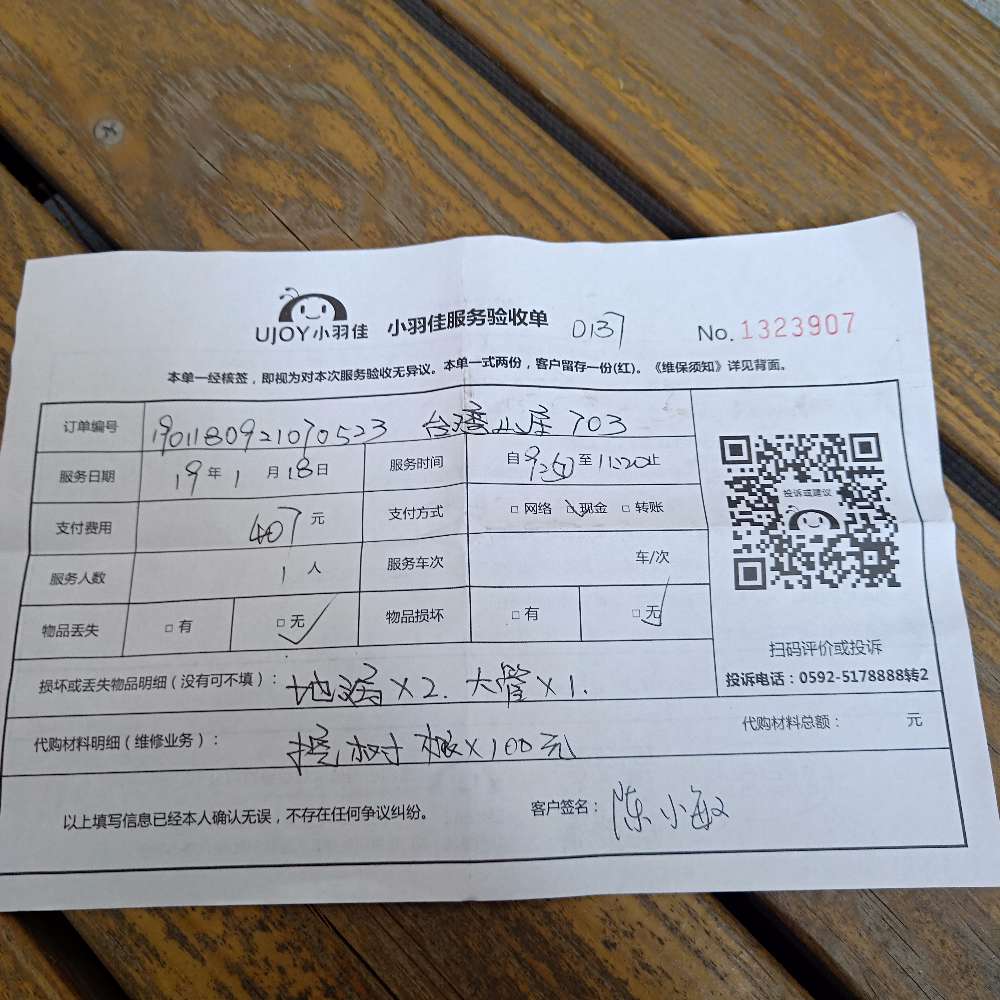 UJOY小羽佳 小羽佳服务验收单 D137 No.1323907
本单一经核签，即视为对本次服务验收无异议。本单一式两份，客户留存一份(红)。《维保须知》详见背面。
订单编号 1901180921070523 台湾山庄 703
服务日期 19年1月18日 服务时间 自9:20至11:20止
支付费用 407元 支付方式 □网络 ☑现金 □转账
服务人数 1人 服务车次 车/次
物品丢失 □有 □无✓ 物品损坏 □有 □无✓
投诉或建议
扫码评价或投诉
投诉电话：0592-5178888转2
损坏或丢失物品明细（没有可不填）： 地漏×2. 大管×1.
代购材料明细（维修业务）： 挖树根×100元 代购材料总额： 元
以上填写信息已经本人确认无误，不存在任何争议纠纷。 客户签名： 陈小敏